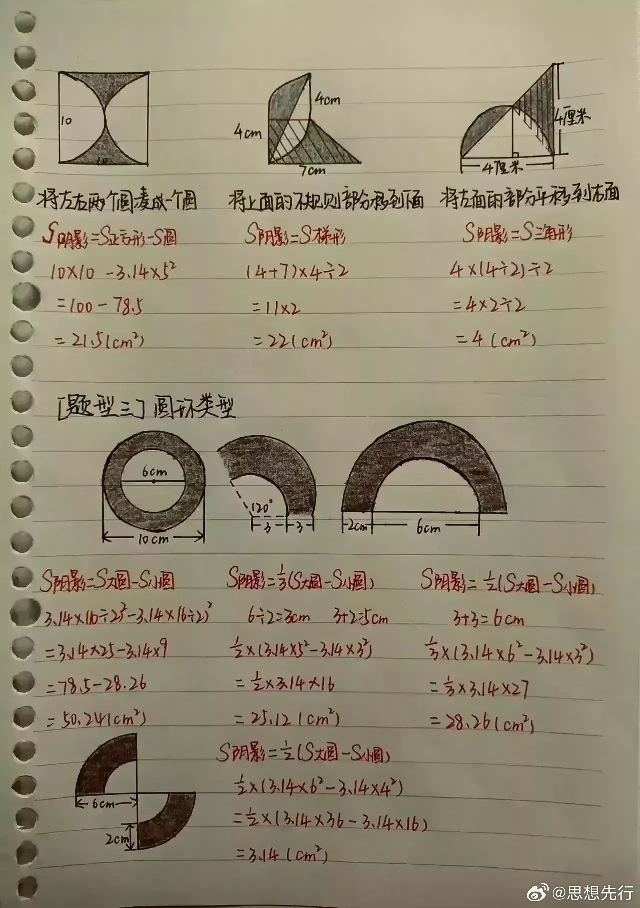 10
10
4cm
4cm
7cm
4厘米
4厘米
将左右两个圆凑成一个圆
将上面的不规则部分移到下面
将左面的部分平移到右面
S阴影=S正方形-S圆
10×10-3.14×5²
=100-78.5
=21.5(cm²)
S阴影=S梯形
(4+7)×4÷2
=11×2
=22(cm²)
S阴影=S三角形
4×(4÷2)÷2
=4×2÷2
=4(cm²)
[题型三]圆环类型
6cm
10cm
120°
3
3
2cm
6cm
S阴影=S大圆-S小圆
=3.14×25-3.14×9
=78.5-28.26
=50.24(cm²)
S阴影=⅓(S大圆-S小圆)
6÷2=3cm 3+2=5cm
½×(3.14×5²-3.14×3²)
=½×3.14×16
=25.12(cm²)
S阴影=½(S大圆-S小圆)
3+3=6cm
⅓×(3.14×6²-3.14×3²)
=⅓×3.14×27
=28.26(cm²)
6cm
2cm
S阴影=½(S大圆-S小圆)
½×(3.14×6²-3.14×4²)
=½×(3.14×36-3.14×16)
=3.14(cm²)
@思想先行